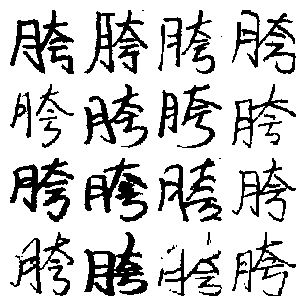 胯胯胯胯
胯胯胯胯
胯胯胯胯
胯胯胯胯